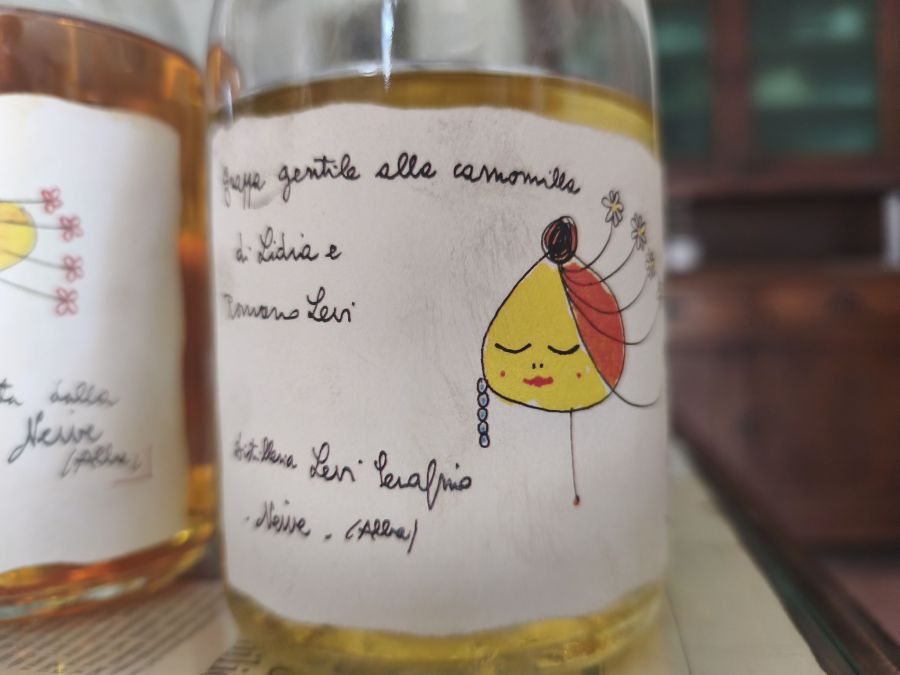 Grappa gentile alla camomilla
di Lidia e
Romano Levi
distilleria Levi Serafino
. Neive . (Alba)
dalla
Neive
(Alba)